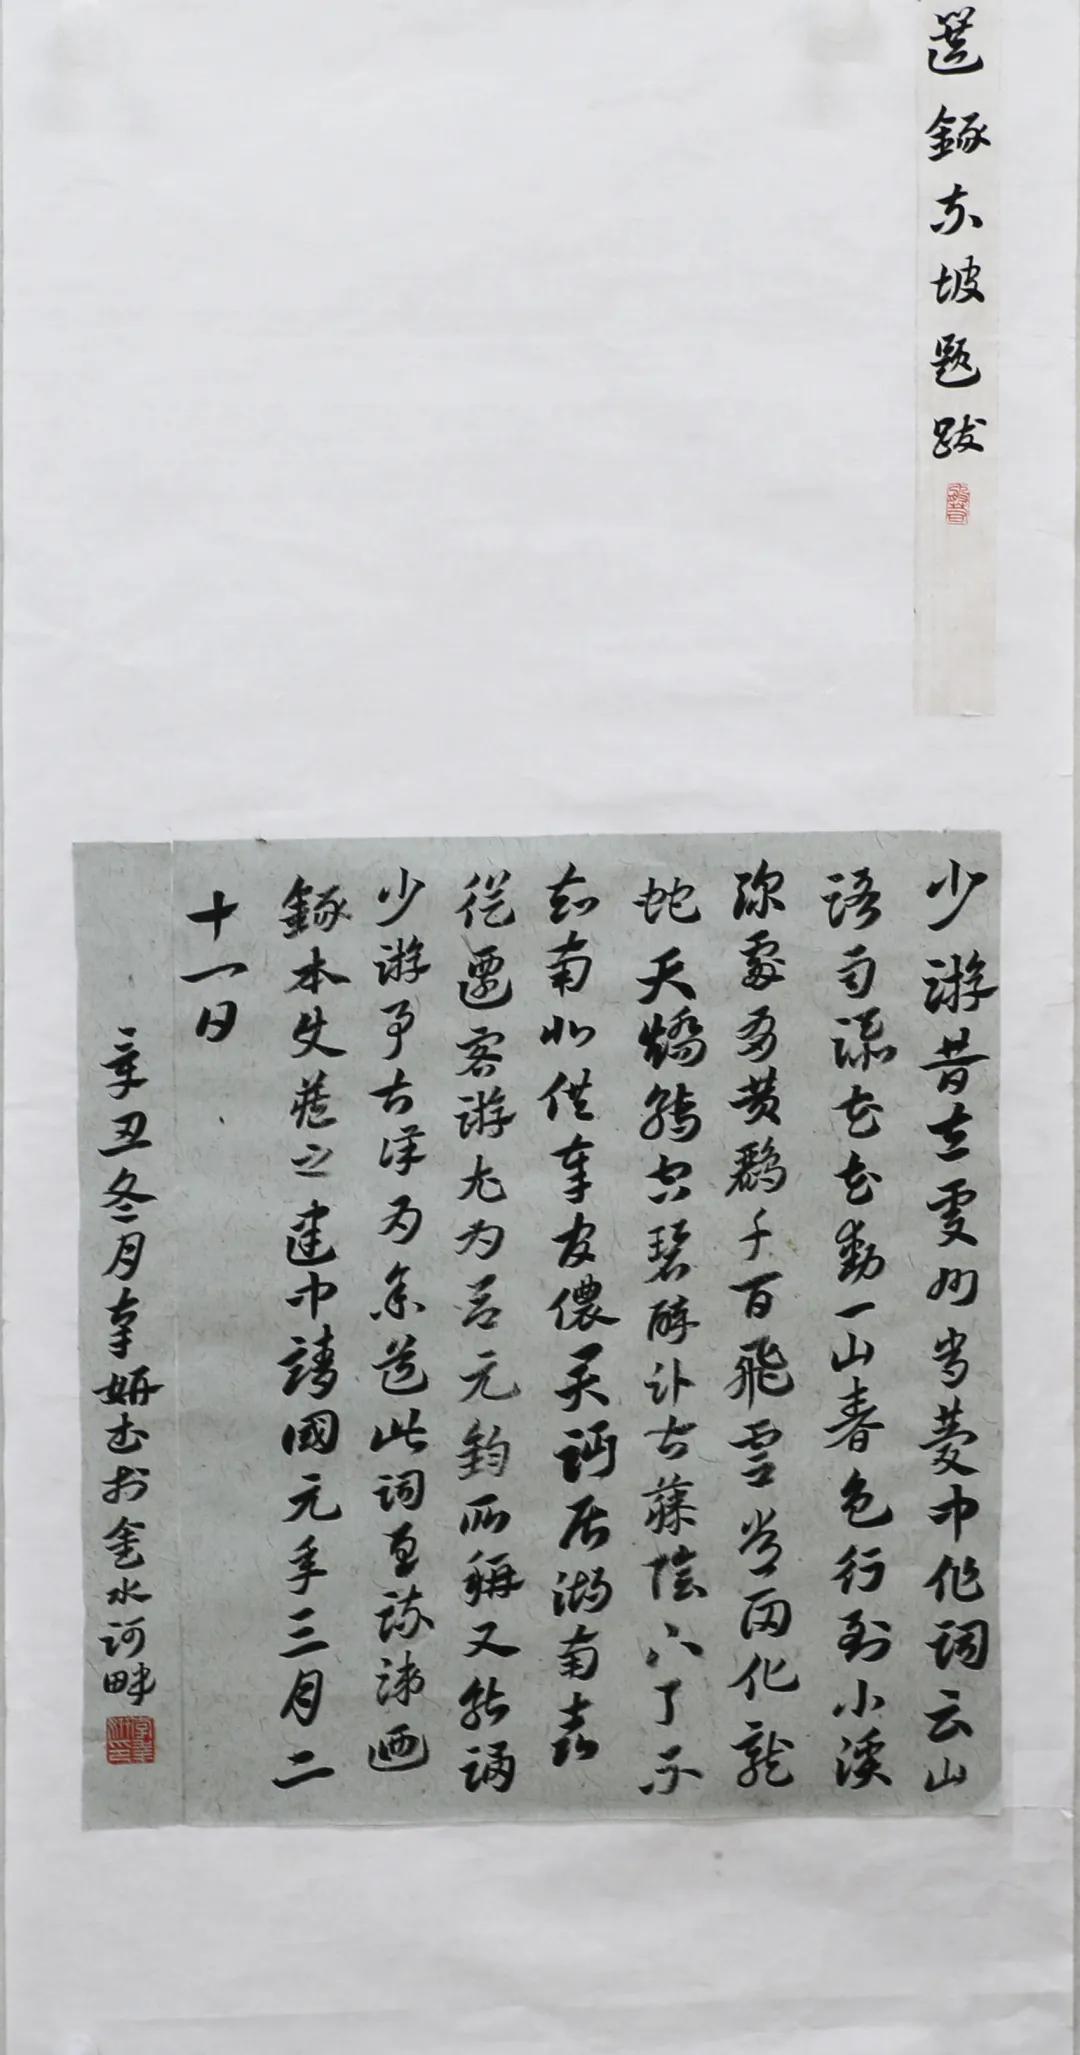 選録东坡题跋
少游昔在虔州嘗夢中作詞云山
路雨添花花動一山春色行到小溪
深處有黄鸝千百飛雲當面化龍
蛇夭矯轉空碧醉卧古藤陰下了不
知南北供奉官儂君沔居湖南喜
從遷客游尤为吕元鈞所稱又能誦
少游事古詳为余道此詞至流涕迺
録本使藏之建中靖國元年三月二
十一日
辛丑冬月妍书於金水河畔